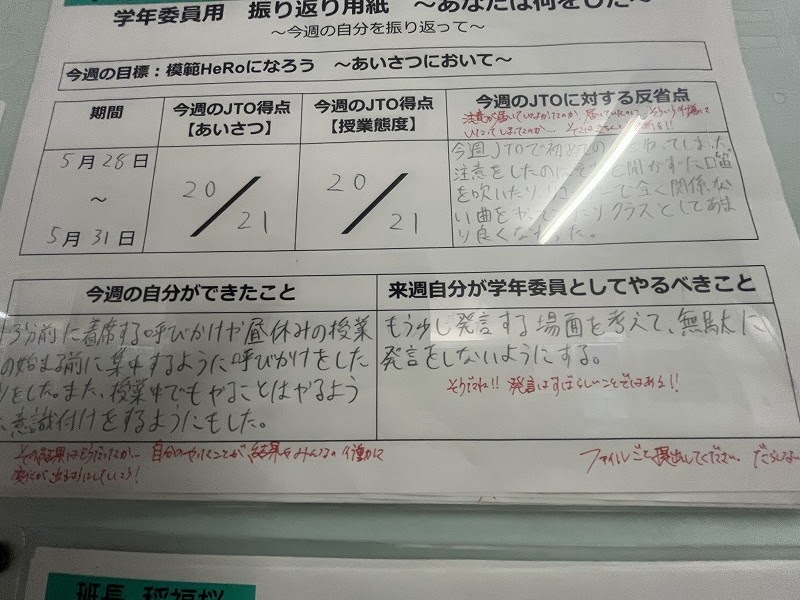 学年委員用 振り返り用紙 ～あなたは何をした～
～今週の自分を振り返って～
今週の目標：模範HeRoになろう ～あいさつにおいて～
期間
今週のJTO得点
【あいさつ】
今週のJTO得点
【授業態度】
今週のJTOに対する反省点
5月28日
～
5月31日
20/21
20/21
今週JTOで初めての
注意をしたのに 聞かずに口笛
を吹いたり で全く関係な
い曲を クラスとしてあま
り良くなかった。
今週の自分ができたこと
3分前に着席する呼びかけや昼休みの授業
の始まる前に集中するように呼びかけをした
りをした。また、授業中でもやることはやるよう
に意識付けをするようにもした。
来週自分が学年委員としてやるべきこと
もう少し発言する場面を考えて、無駄に
発言をしないようにする。
そうだね!! 発言はすばらしいことではある!!
その結果はどうだったか… 自分のやったことが結果をみんなの行動に
変化が出るようにしていこう!
ファイルごと提出してください。
班長 稲福桜